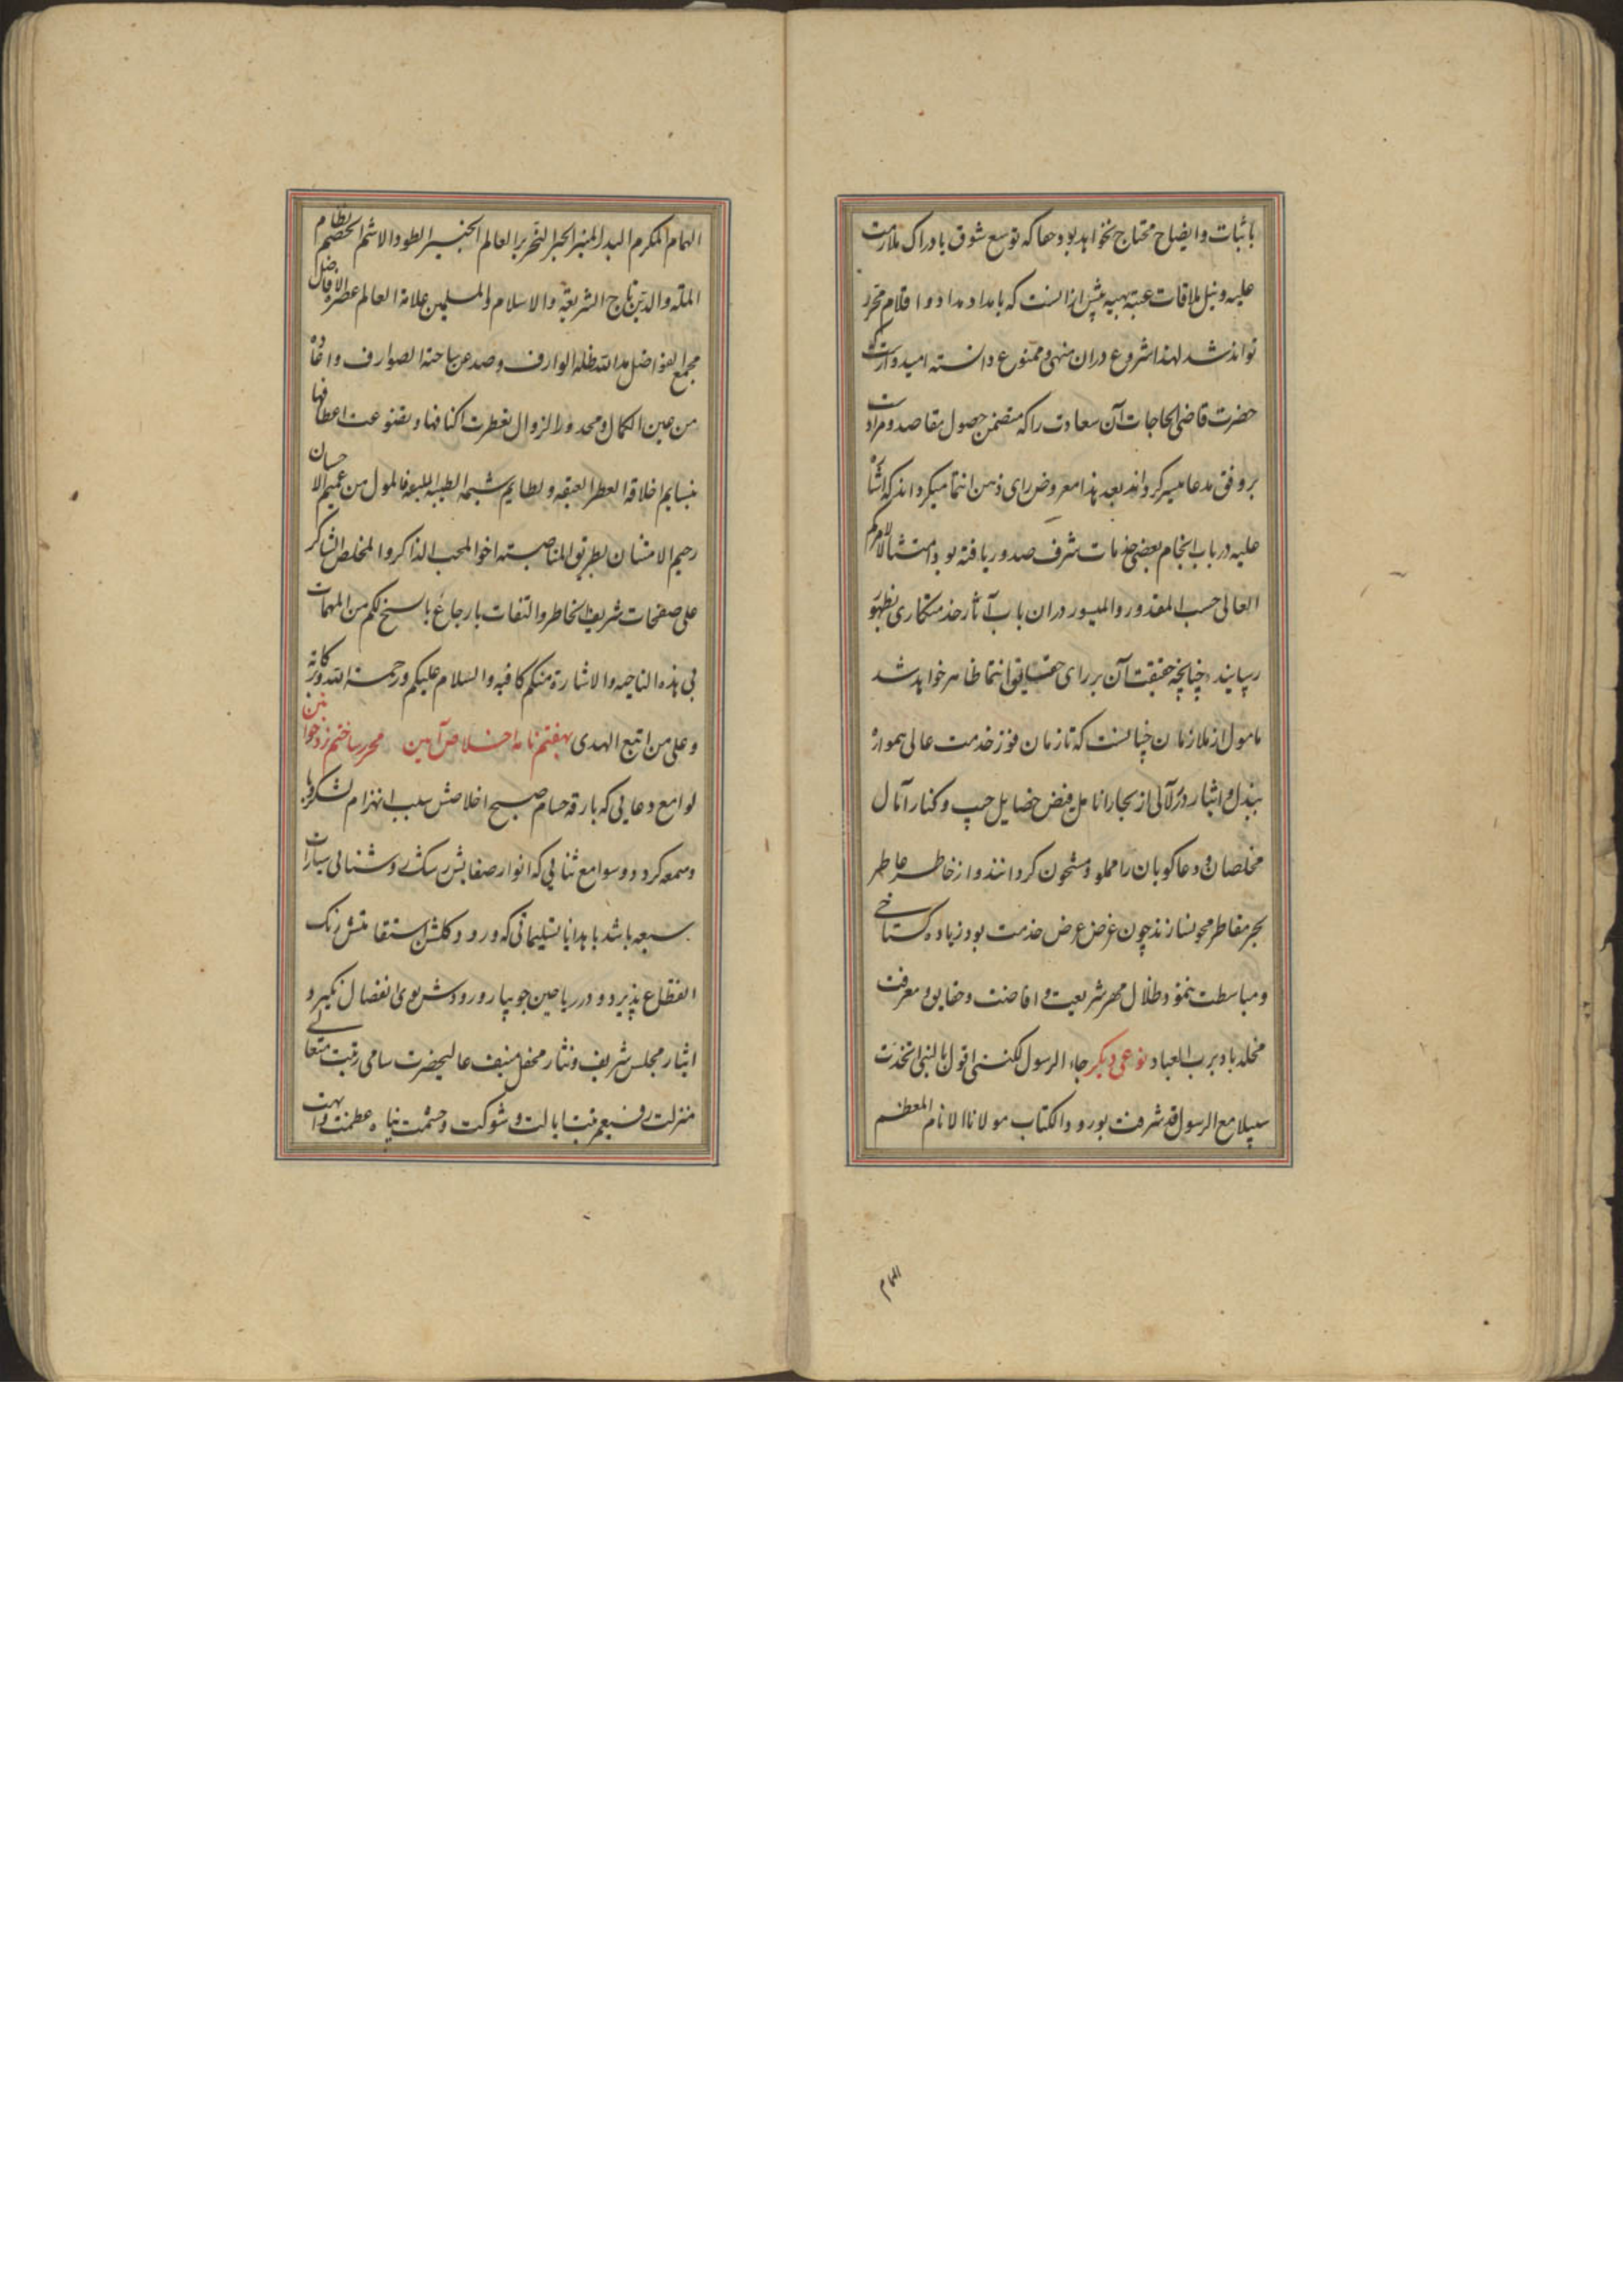 باثبات وایضاح محتاج نخواهد بود حقا که توسع شوق بادراک ملازمت
علیه و نیل ملاقات عتبه بهیه پیش ازانست که بامداد مداد و اقلام محرر
تواند شد لهذا شروع دران منهی و ممنوع دانسته امیدوارست که
حضرت قاضی الحاجات آن سعادت را که متضمن حصول مقاصد و مراداتست
بر وفق مدعا میسر کرداند بعد هذا معروض رای ذهن انتما میکرداند که اشارة
علیه در باب انجام بعضی خدمات شرف صدور یافته بود امتثالا لامرکم
العالی حسب المقدور والمیسور دران باب آثار خدمتکاری بظهور
رسانید چنانچه حقیقت آن بر رای حقایق انتما ظاهر خواهد شد
مامول از ملازمان چنانست که تا زمان فوز خدمت عالی همواره
ببذل و ایثار درر لآلی از بحار انامل فیض خصایل جیب و کنار آمال
مخلصان و دعاکویان را مملو و مشحون کردانند و از خاطر عاطر
بحر مقاطر محو نسازند چون غرض عرض خدمت بود زیاده کستاخی
و مباسطت ننمود ظلال مهر شریعت و افاضت و حقایق و معرفت
مخلد باد برب العباد نوعی دیکر جاء الرسول لکنت اقول یا لیتنی اتخذت
سبیلا مع الرسول قد شرفت بورود الکتاب مولانا الانام المعظم
الهمام
الهمام المکرم البدر المنیر الحبر النحریر العالم الخبیر الطود الاشم الخضم نظام
الملة والدین تاج الشریعة والاسلام والمسلمین علامة العالم عصره الافاضل
مجمع الفواضل مد الله ظله الوارف وصد عن ساحته الصوارف و
من عین الکمال و محذور الزوال بعطرت اکنافها و بضوعت اعطافها
بنسایم اخلاقه العطر العبقه و لطایم شیمه الطیبه فالمول من عمیم الاحسان
رحیم الامتنان بطریق المناصبته اخوا المحب الذاکر والمخلص الشاکر
علی صفحات شریفة الخاطر والتفات بارجاع ما سنح لکم من المهمات
فی هذه الناحیه والاشارة منکم کافیه والسلام علیکم ورحمة الله وبرکاته
وعلی من اتبع الهدی هفتم نامه اخلاص آیین محرر ساختم زد خواتین
لوامع دعایی که بارقه حسام صبح اخلاصش سبب انهزام لشکر ریا
وسمعه کردد و سوامع ثنایی که انوار صفایش رشک روشنایی سیارات
سبعه باشد با هدایا تسلیماتی که ورود کلشن استقامتش رنک
انقطاع پذیرد و در ریاحین جویبار ورودش بوی انفصال نکیرد
ایثار مجلس شریف و نثار محفل منیف عالیحضرت سامی رتبت متعالی
منزلت رفیع مرتبت ایالت و شوکت و حشمت پناه عظمت و ابهت